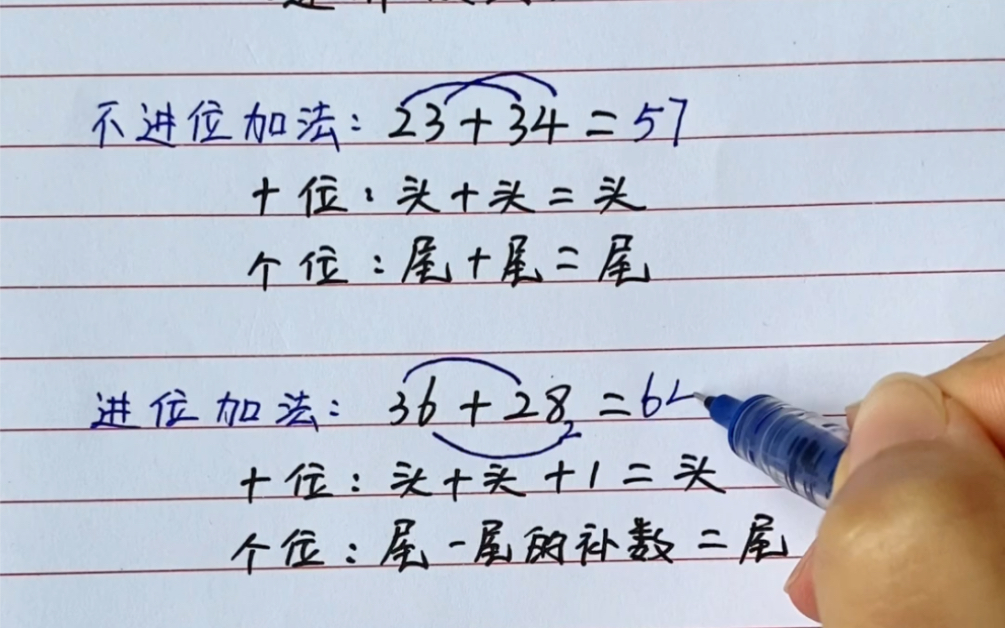 不进位加法：23+34=57
十位：头+头=头
个位：尾+尾=尾
进位加法：36+28=6
2
十位：头+头+1=头
个位：尾-尾的补数=尾